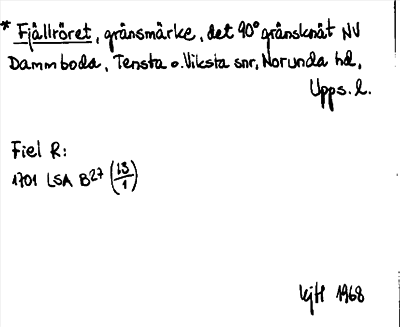 * Fjällröret, gränsmärke, det 90° gränsknät NV
Dammboda, Tensta o. Viksta snr, Norunda hd,
Upps. l.
Fiel R:
1701 LSA B27 (13/1)
KjH 1968